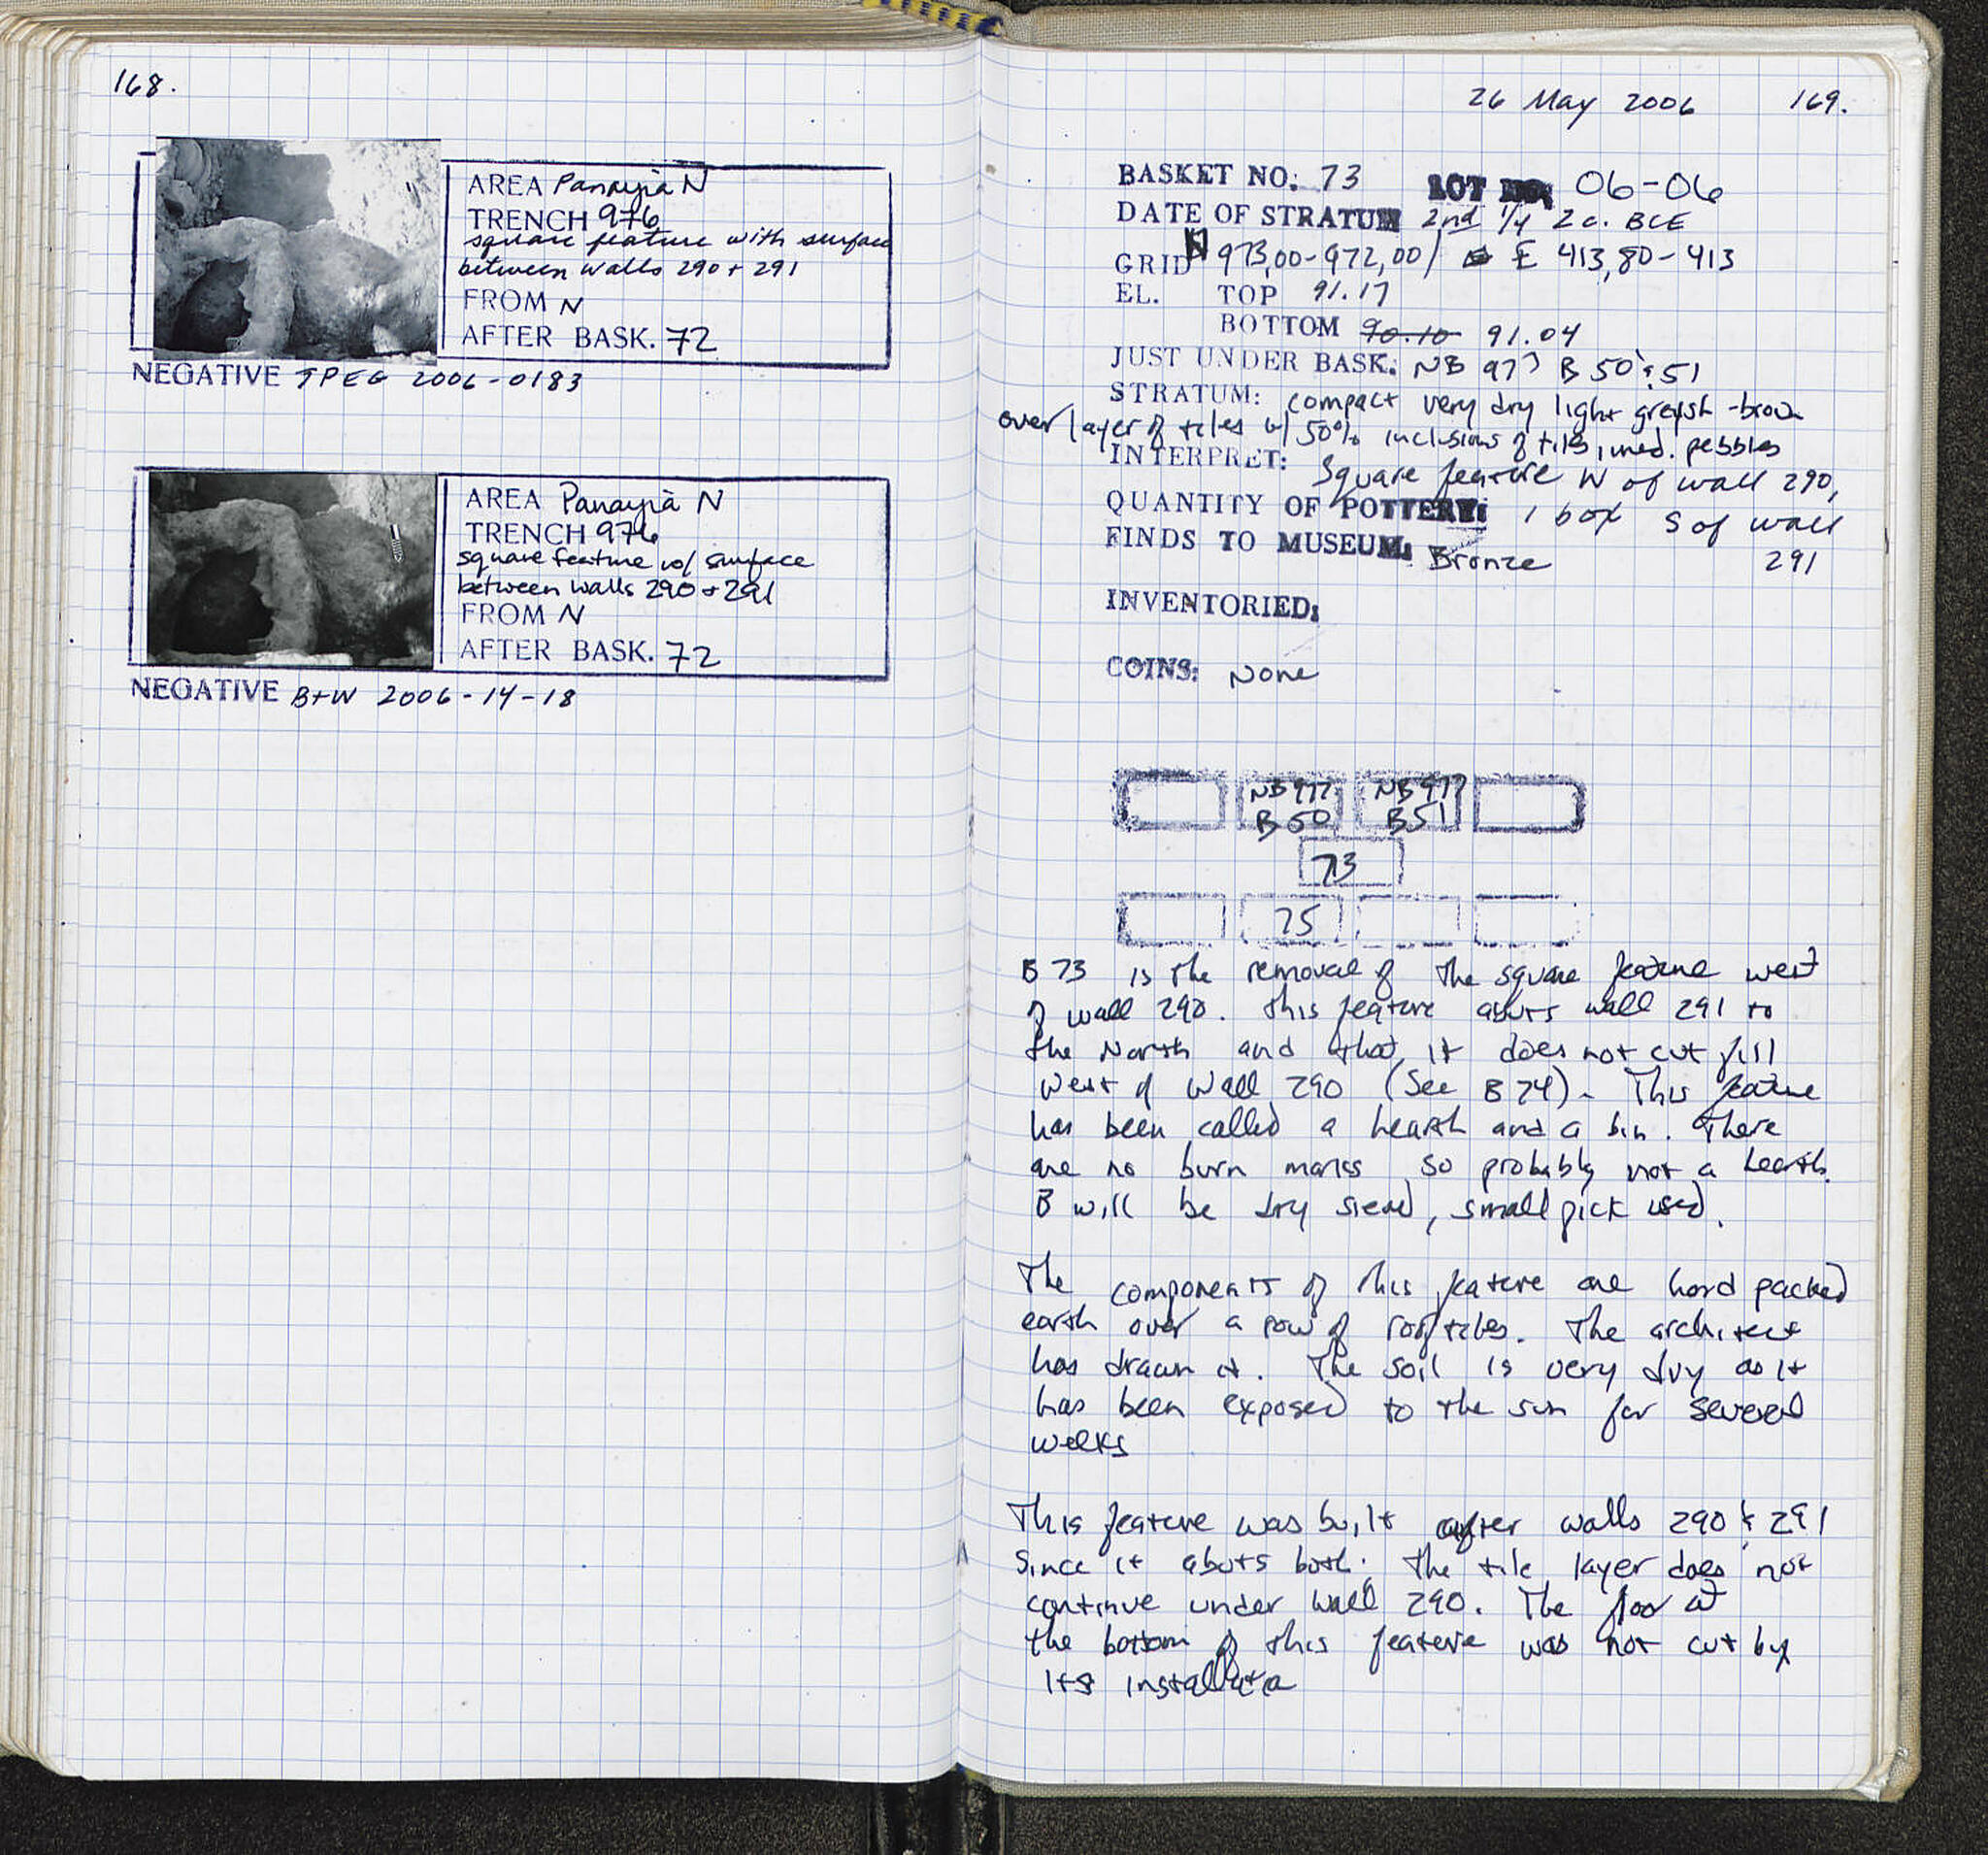 168.
AREA Panayia N
TRENCH 976
square feature with surface
between walls 290 + 291
FROM N
AFTER BASK. 72
NEGATIVE JPEG 2006-0183
AREA Panayià N
TRENCH 976
square feature w/ surface
between walls 290 + 291
FROM N
AFTER BASK. 72
NEGATIVE B+W 2006-14-18
26 May 2006 169.
BASKET NO: 73 LOT NO: 06-06
DATE OF STRATUM 2nd 1/4 2 c. BCE
GRID N 973,00-972,00/ E 413,80-413
EL. TOP 91.17
BOTTOM 90.10 91.04
JUST UNDER BASK: NB 977 B 50 & 51
STRATUM: compact very dry light greyish-brown
over layer of tiles w/ 50% inclusions of tiles, med. pebbles
INTERPRET: Square feature W of wall 290,
QUANTITY OF POTTERY: 1 box S of wall
FINDS TO MUSEUM: Bronze 291
INVENTORIED:
COINS: None
NB 977 B 50
NB 977 B 51
73
75
B 73 is the removal of the square feature west
of wall 290. This feature abuts wall 291 to
the North and that it does not cut fill
west of wall 290 (See B 74). This feature
has been called a hearth and a bin. There
are no burn marks so probably not a hearth.
B will be dry sieved, small pick used.
The components of this feature are hard packed
earth over a row of rooftiles. The architect
has drawn it. The soil is very dry as it
has been exposed to the sun for several
weeks
This feature was built after walls 290 & 291
since it abuts both. The tile layer does not
continue under wall 290. The floor at
the bottom of this feature was not cut by
its installation